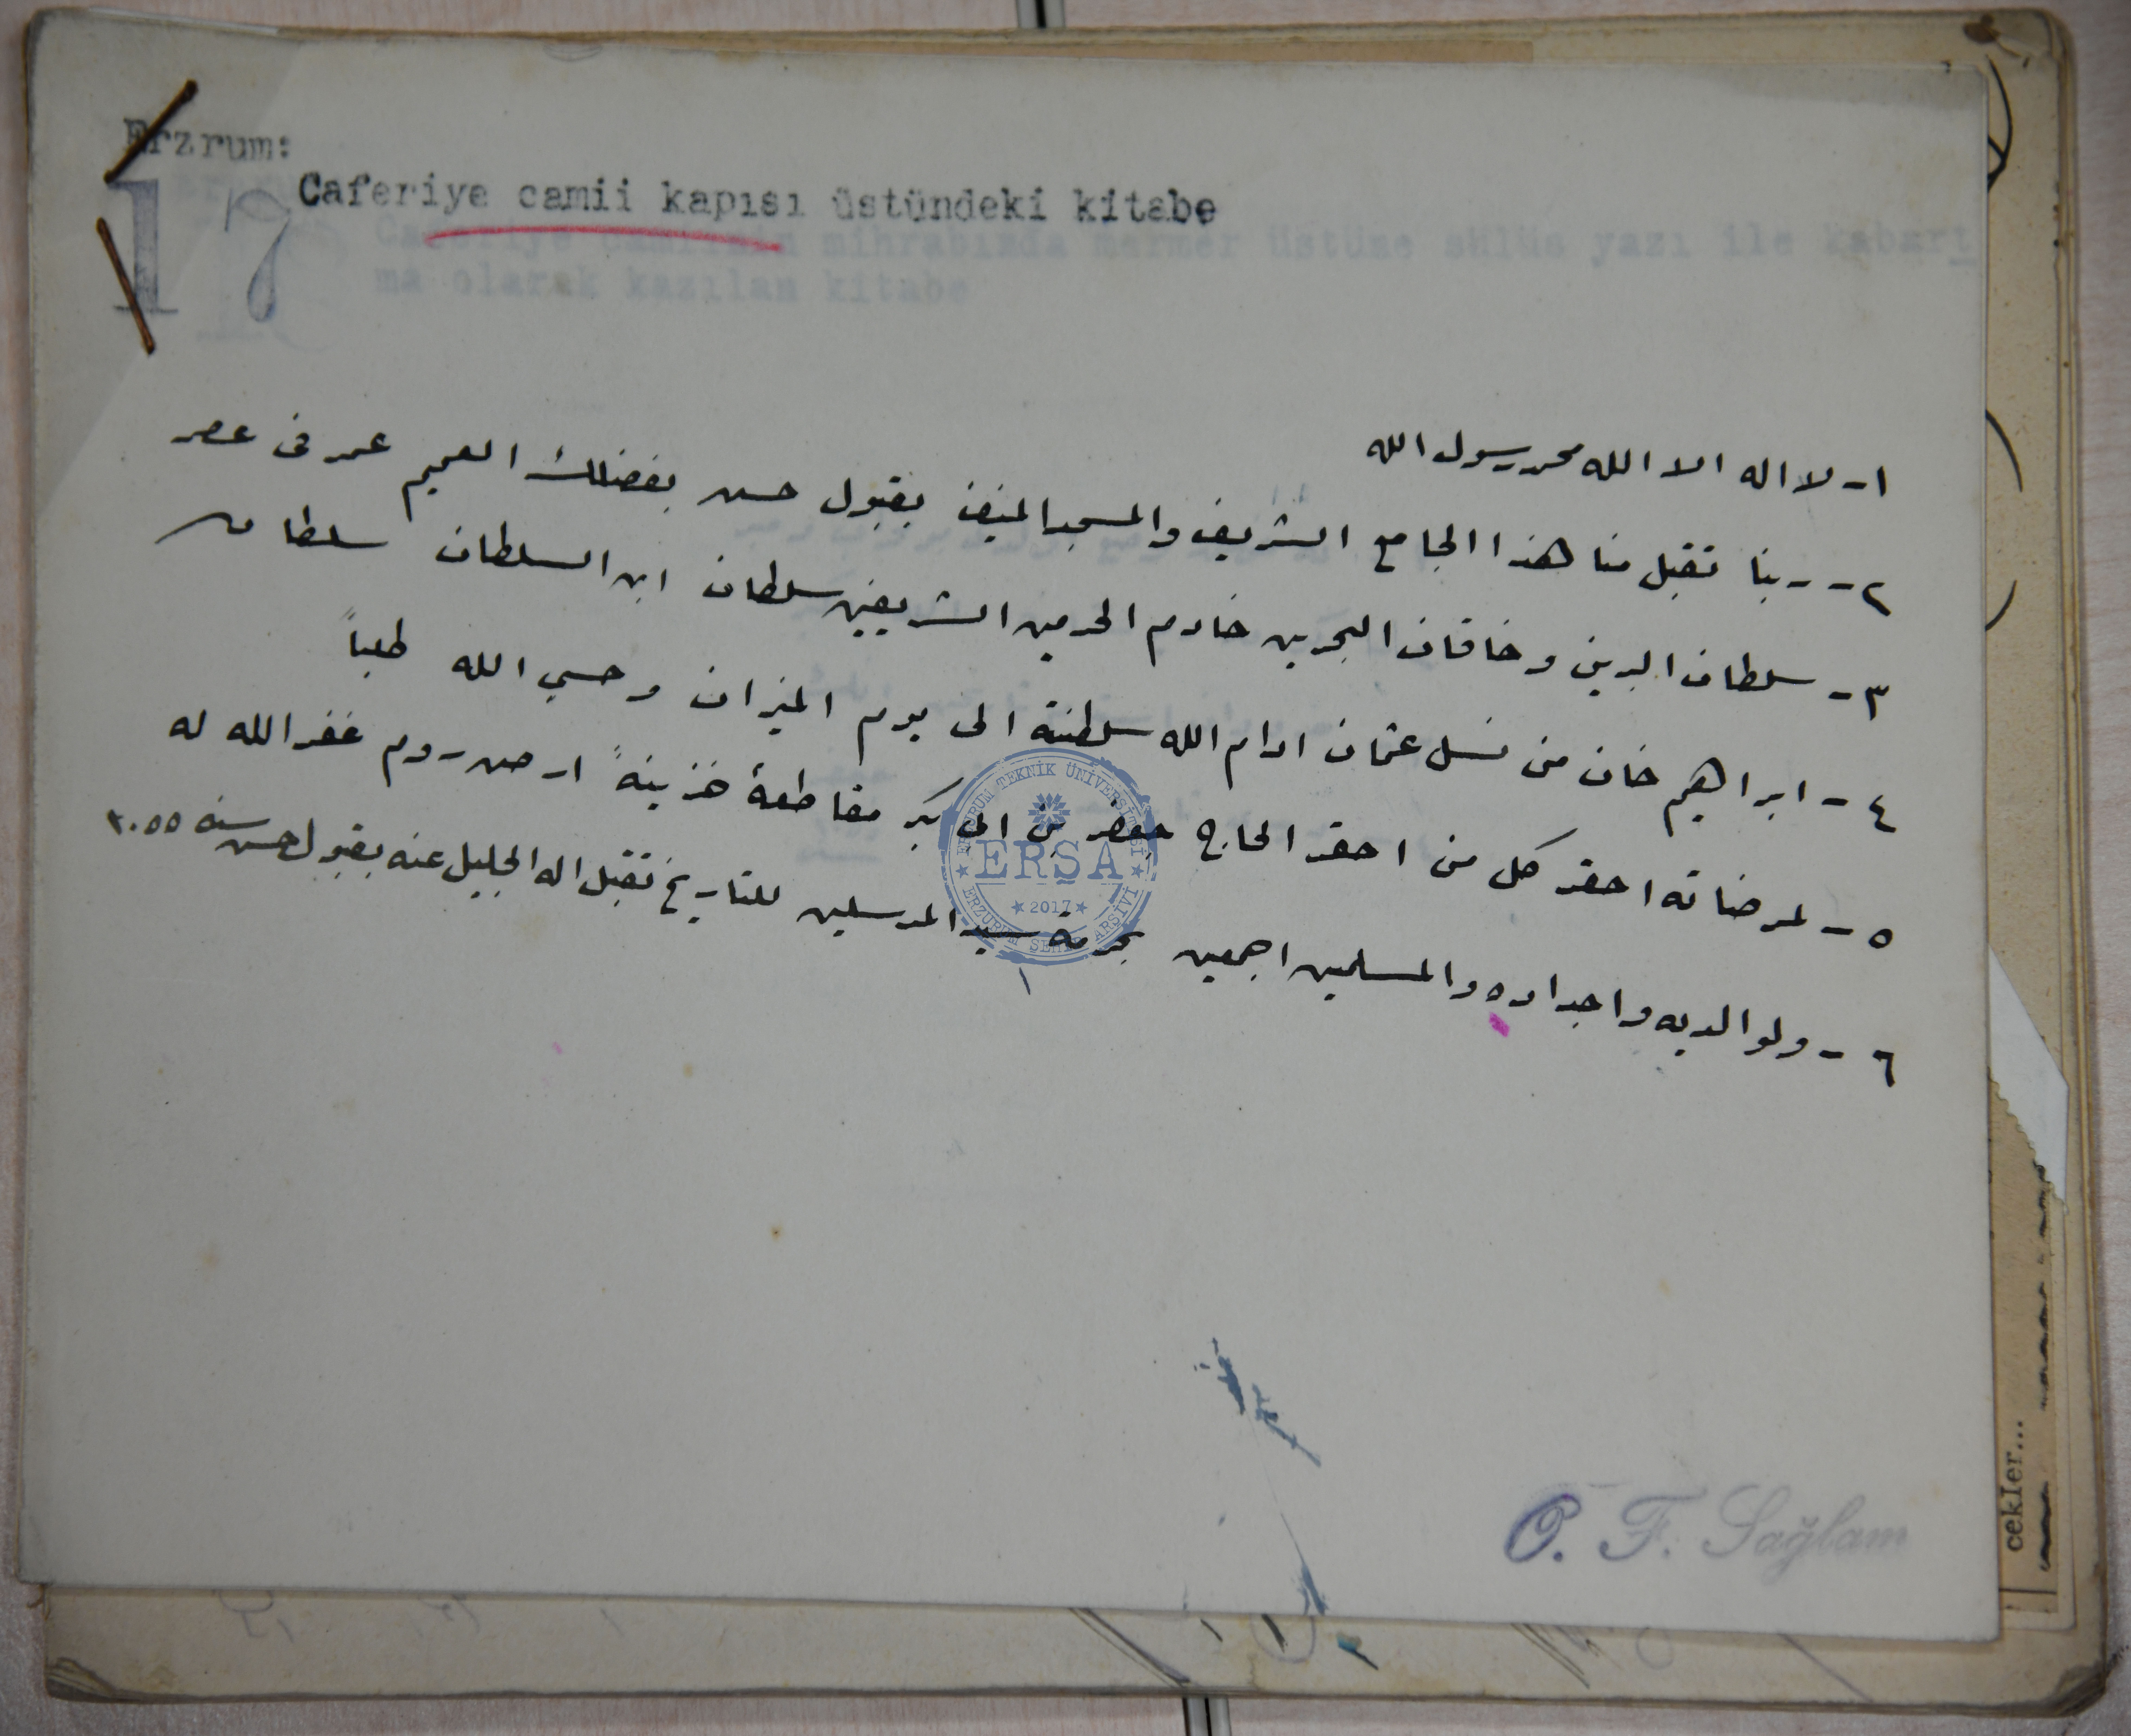 Erzrum:
17
Caferiye camii kapısı üstündeki kitabe
Caferiye camiinin mihrabında mermer üstüne sülüs yazı ile kabart
ma olarak kazılan kitabe
١- لا اله الا الله محمد رسول الله
٢- ربنا تقبل منا هذا الجامع الشريف والمسجد المنيف بقبول حسن بفضلك العميم عمر فى عصر
٣- سلطان البرين وخاقان البحرين خادم الحرمين الشريفين سلطان ابن السلطان سلطان
٤- ابراهيم خان من نسل عثمان ادام الله سلطنته الى يوم الميزان وحسبي الله طلباً
٥- لمرضاته احقر كل من احقر الحاج جعفر بن ابى بكر مقاطعۀ خزينۀ ارضروم غفر الله له
٦- ولوالديه واجداده والمسلمين اجمعين بحرمة سيد المرسلين للتاريخ تقبل اله الجليل عنه بقبول حسن سنه ١٠٥٥
ERZURUM TEKNİK ÜNİVERSİTESİ
ERŞA
2017
ERZURUM ŞEHİR ARŞİVİ
O. F. Sağlam
cekler...